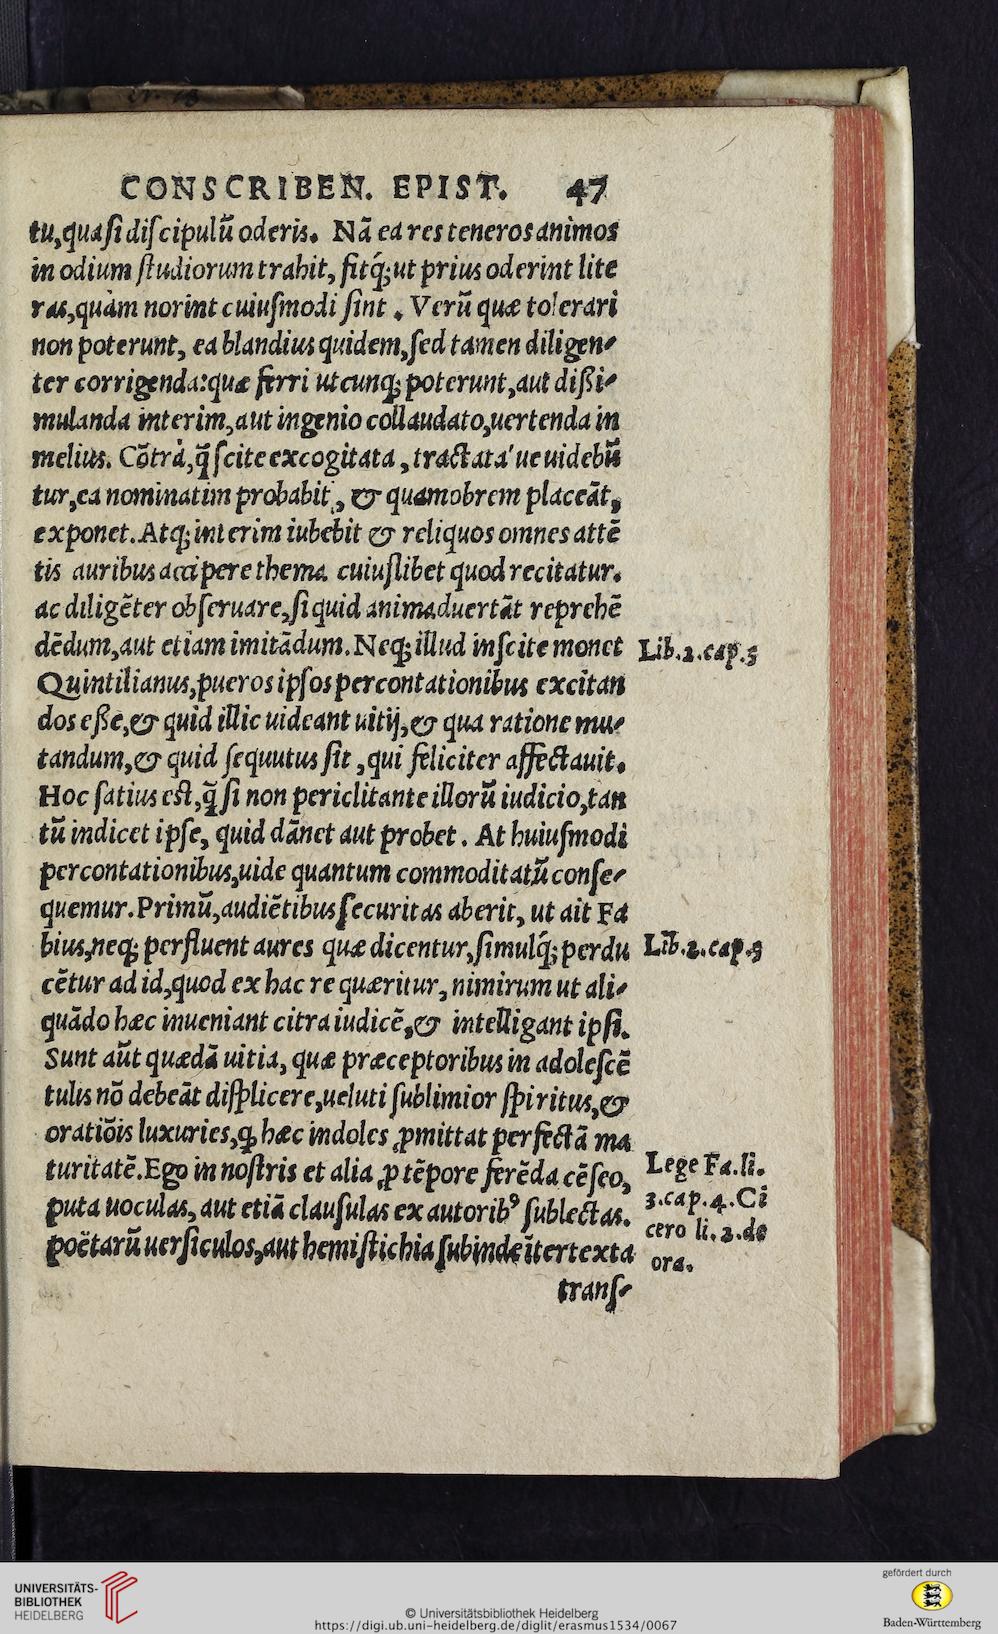 CONSCRIBEN. EPIST. 47
tu, quasi discipulũ oderis. Nã ea res teneros animos
in odium studiorum trahit, fitq́; ut prius oderint lite
ras, quàm norint cuiusmodi sint. Verũ quæ tolerari
non poterunt, ea blandius quidem, sed tamen diligen-
ter corrigenda: quæ ferri utcunq; poterunt, aut dißi-
mulanda interim, aut ingenio collaudato, uertenda in
melius. Cõtrà, q̃ scite excogitata, tractata'ue uidebũ
tur, ea nominatim probabit, & quamobrem placeãt,
exponet. Atq; interim iubebit & reliquos omnes attẽ
tis auribus accipere thema cuiuslibet quod recitatur.
ac diligẽter obseruare, si quid animaduertãt reprehẽ
dẽdum, aut etiam imitãdum. Neq; illud inscite monet
Lib. 2. cap. 5
Quintilianus, pueros ipsos percontationibus excitan
dos eße, & quid illic uideant uitij, & qua ratione mu-
tandum, & quid sequutus sit, qui feliciter affectauit.
Hoc satius est, q̃ si non periclitante illorũ iudicio, tan
tũ indicet ipse, quid dãnet aut probet. At huiusmodi
percontationibus, uide quantum commoditatũ conse-
quemur. Primũ, audiẽtibus securitas aberit, ut ait Fa
bius, neq; perfluent aures quæ dicentur, simulq́; perdu
Lib. 2. cap. 5
cẽtur ad id, quod ex hac re quæritur, nimirum ut ali-
quãdo hæc inueniant citra iudicẽ, & intelligant ipsi.
Sunt aũt quædã uitia, quæ præceptoribus in adolescẽ
tulis nõ debeãt displicere, ueluti sublimior spiritus, &
oratiõis luxuries, q; hæc indoles ꝓmittat perfectã ma
turitatẽ. Ego in nostris et alia ꝓ tẽpore ferẽda cẽseo,
puta uoculas, aut etiã clausulas ex autorib⁹ sublectas.
poëtarũ uersiculos, aut hemistichia subinde ĩtertexta
Lege Fa. li.
3. cap. 4. Ci
cero li. 2. de
ora.
trans-
UNIVERSITÄTS-
BIBLIOTHEK
HEIDELBERG
© Universitätsbibliothek Heidelberg
https://digi.ub.uni-heidelberg.de/diglit/erasmus1534/0067
gefördert durch
Baden-Württemberg